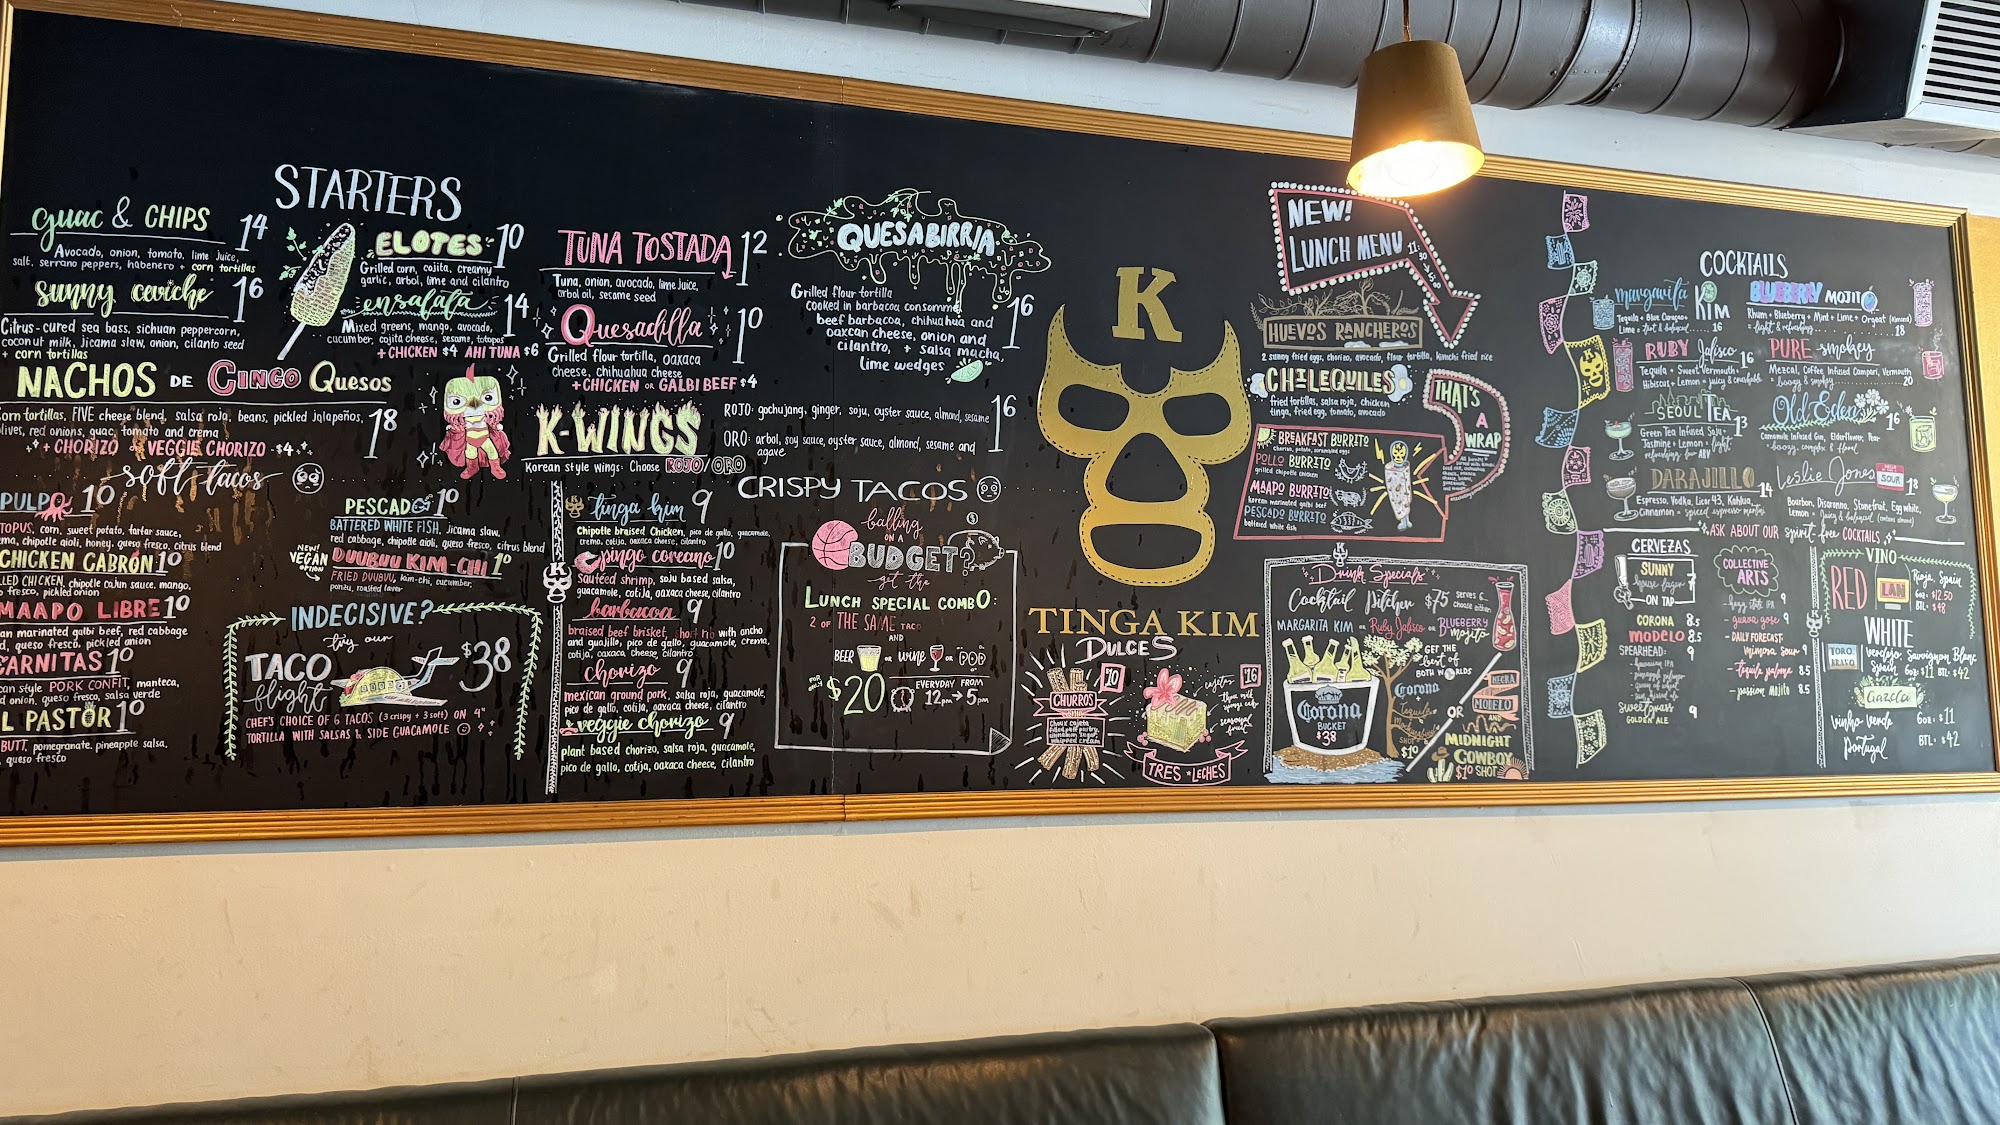 STARTERS
guac & CHIPS 14
Avocado, onion, tomato, lime juice,
salt, serrano peppers, habenero + corn tortillas
sunny ceviche 16
Citrus-cured sea bass, sichuan peppercorn,
coconut milk, jicama slaw, onion, cilanto seed
+ corn tortillas
ELOTES 10
Grilled corn, cojita, creamy
garlic, arbol, lime and cilantro
ensalata 14
Mixed greens, mango, avocado,
cucumber, cojita cheese, sesame, totopos
+ CHICKEN $4 AHI TUNA $6
NACHOS DE CINCO QUESOS 18
corn tortillas, FIVE cheese blend, salsa roja, beans, pickled jalapeños,
olives, red onions, guac, tomato and crema
+ CHORIZO or VEGGIE CHORIZO -$4
TUNA TOSTADA 12
Tuna, onion, avocado, lime juice,
arbol oil, sesame seed
Quesadilla 10
Grilled flour tortilla, oaxaca
cheese, chihuahua cheese
+ CHICKEN OR GALBI BEEF $4
K-WINGS 16
Korean style wings: Choose ROJO/ORO
ROJO: gochujang, ginger, soju, oyster sauce, almond, sesame
ORO: arbol, soy sauce, oyster sauce, almond, sesame and
agave
QUESABIRRIA 16
Grilled flour tortilla
cooked in barbacoa consommé,
beef barbacoa, chihuahua and
oaxcan cheese, onion and
cilantro, + salsa macha,
lime wedges
soft tacos
PULPO 10
TOPUS, corn, sweet potato, tartar sauce,
ma, chipotle aioli, honey, queso fresco, citrus blend
CHICKEN CABRÓN 10
LED CHICKEN, chipotle cajun sauce, mango,
o fresco, pickled onion
MAAPO LIBRE 10
an marinated galbi beef, red cabbage
d, queso fresco, pickled onion
CARNITAS 10
an style PORK CONFIT, manteca,
d onion, queso fresco, salsa verde
L PASTOR 10
BUTT, pomegranate, pineapple salsa,
, queso fresco
PESCADO 10
BATTERED WHITE FISH, jicama slaw,
red cabbage, chipotle aioli, queso fresco, citrus blend
NEW!
VEGAN
OPTION
DUUBUU KIM-CHI 10
FRIED DUUBUU, kim-chi, cucumber,
ponzu, roasted laver
INDECISIVE?
try our
TACO
flight
$38
CHEF'S CHOICE OF 6 TACOS (3 crispy + 3 soft) ON 4"
TORTILLA WITH SALSAS & SIDE GUACAMOLE
CRISPY TACOS
tinga kim 9
Chipotle braised Chicken, pico de gallo, guacamole,
crema, cotija, oaxaca cheese, cilantro
pingo coreano 10
Sautéed shrimp, soju based salsa,
guacamole, cotija, oaxaca cheese, cilantro
barbacoa 9
braised beef brisket, short rib with ancho
and guajillo, pico de gallo, guacamole, crema,
cotija, oaxaca cheese, cilantro
chorizo 9
mexican ground pork, salsa roja, guacamole,
pico de gallo, cotija, oaxaca cheese, cilantro
veggie chorizo 9
plant based chorizo, salsa roja, guacamole,
pico de gallo, cotija, oaxaca cheese, cilantro
balling
ON A
BUDGET?
get the
LUNCH SPECIAL COMBO:
2 OF THE SAME TACO
AND
BEER OR WINE OR POP
FOR ONLY
$20
EVERYDAY FROM
12pm → 5pm
K
TINGA KIM
DULCES
CHURROS 10
TRES LECHES 16
seasonal
fruit
NEW!
LUNCH MENU
HUEVOS RANCHEROS
2 sunny fried eggs, chorizo, avocado, flour tortilla, kimchi fried rice
CHILEQUILES
fried tortillas, salsa roja, chicken
tinga, fried egg, tomato, avocado
THAT'S
A
WRAP
BREAKFAST BURRITO
chorizo, potato, scrambled eggs
POLLO BURRITO
grilled chipotle chicken
MAAPO BURRITO
korean marinated galbi beef
PESCADO BURRITO
battered white fish
Drink Specials
Cocktail Pitcher $75
MARGARITA KIM or Ruby Jalisco or BLUEBERRY
mojito
Corona
BUCKET
$38
GET THE
best of
BOTH WORLDS
Corona
Tequila
$10
OR
NEGRA
MODELO
AND
MIDNIGHT
COWBOY
$10 SHOT
COCKTAILS
margarita KIM
Tequila + Blue Curaçao +
Lime 16
BLUEBERRY MOJITO
Rhum + Blueberry + Mint + Lime + Orgeat (Almond)
= light & refreshing 18
RUBY Jalisco 16
Tequila + Sweet Vermouth +
Hibiscus + Lemon = juicy & crushable
PURE smokey
Mezcal, Coffee Infused Campari, Vermouth
= boozy & smokey 20
SEOUL TEA 13
Green Tea Infused Soju +
Jasmine + Lemon = light,
refreshing, low ABV
Old Eden 16
Camomile Infused Gin, Elderflower, Pear
= boozy, complex & floral
DARAJILLO 14
Espresso, Vodka, Licor 43, Kahlua,
Cinnamon = spiced espresso martini
Leslie Jones SOUR 18
Bourbon, Disaronno, Stonefruit, Egg white,
Lemon = juicy & balanced
ASK ABOUT OUR spirit-free COCKTAILS
CERVEZAS
SUNNY
house lager 7
ON TAP
CORONA 8.5
MODELO 8.5
SPEARHEAD: 9
- hawaiian IPA
sweetgrass
GOLDEN ALE 9
COLLECTIVE
ARTS
- hazy state IPA 9
- guava gose 9
- DAILY FORECAST:
mimosa sour 9
- tequila paloma 8.5
- passion mojito 8.5
VINO
RED
LAN
Rioja, Spain
6oz = $12.50
BTL = $48
WHITE
TORO
BRAVO
Verdejo, Sauvignon Blanc
Spain
6oz = $11 BTL = $42
Gazela
Vinho Verde
Portugal
6oz = $11
BTL = $42